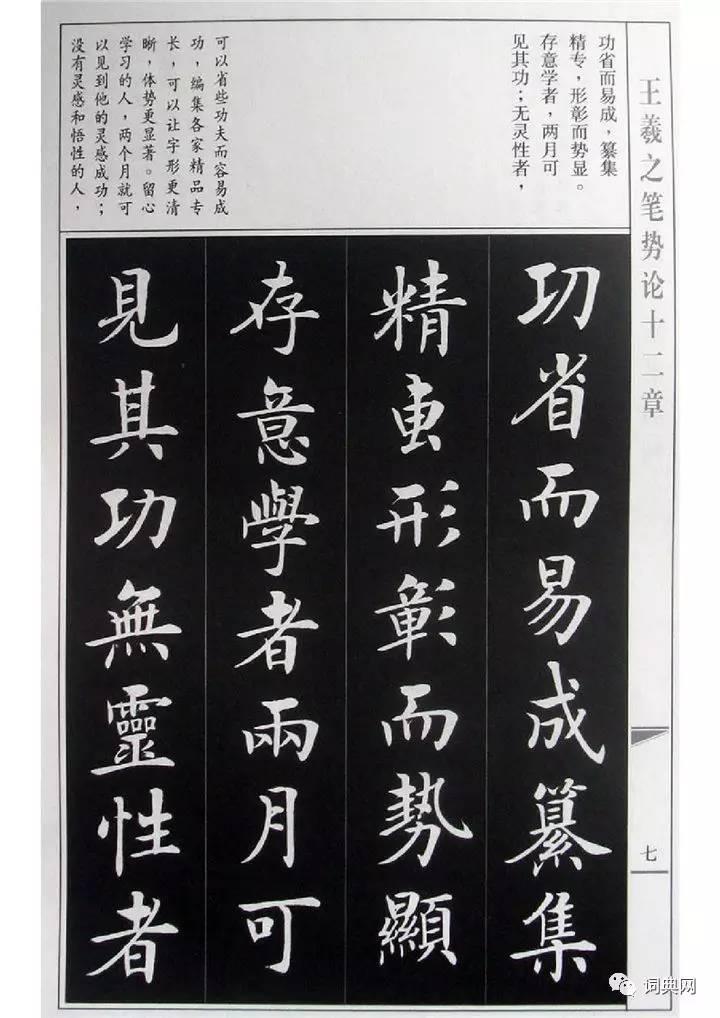 王羲之笔势论十二章
七
功省而易成，纂集
精专，形彰而势显。
存意学者，两月可
见其功；无灵性者，
可以省些功夫而容易成
功，编集各家精品专
长，可以让字形更清
晰，体势更显著。留心
学习的人，两个月就可
以见到他的灵感成功；
没有灵感和悟性的人，
功省而易成纂集
精專形彰而勢顯
存意學者兩月可
見其功無靈性者
词典网